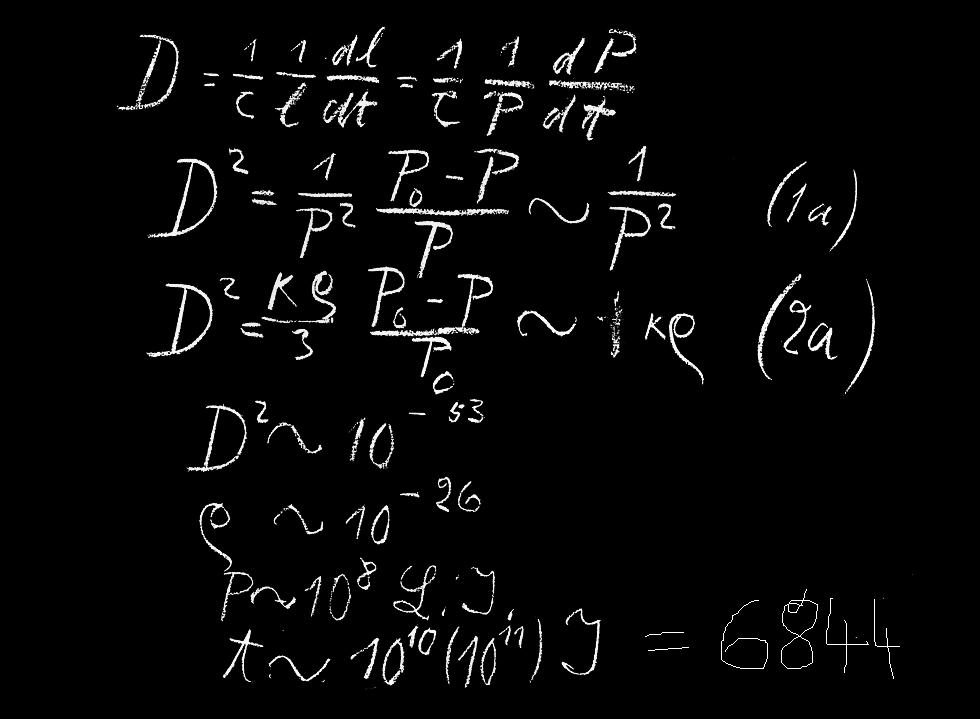 D = 1/c 1/l dl/dt = 1/c 1/P dP/dt
D² = 1/P² (P₀-P)/P ~ 1/P² (1a)
D² = κρ/3 (P₀-P)/P₀ ~ 1/ κρ (2a)
D² ~ 10⁻⁵³
ρ ~ 10⁻²⁶
P ~ 10⁸ L.J.
t ~ 10¹⁰(10¹¹) J = 6844